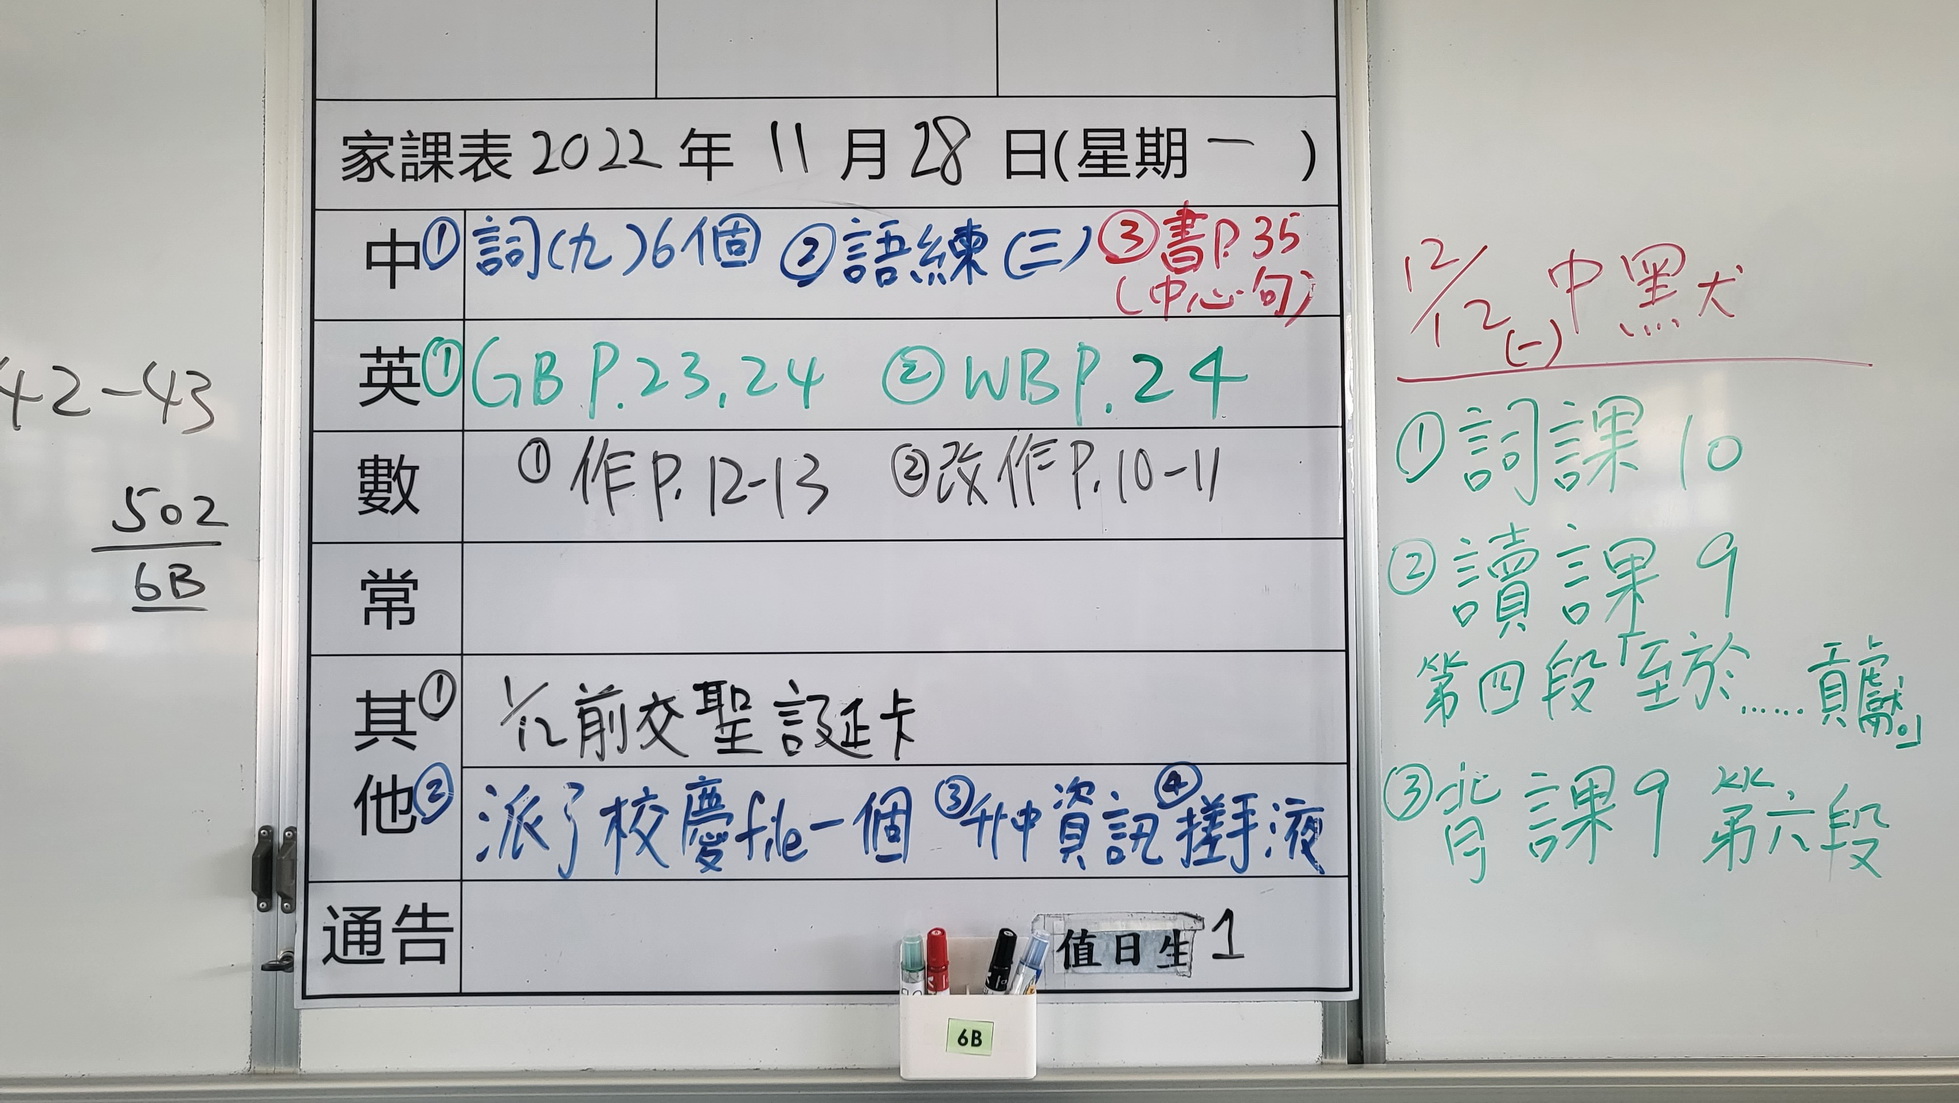 42-43
502
6B
家課表 2022 年 11 月 28 日(星期 一 )
中 ① 詞(九)6個 ② 語練(三) ③ 書P.35
(中心句)
英 ① GB P.23,24 ② WB P.24
數 ① 作 P.12-13 ② 改作 P.10-11
常
其他
① 1/12前交聖誕卡
② 派了校慶file一個 ③ 升中資訊 ④ 搓手液
通告
值日生 1
6B
12/12(一)中默
① 詞課 10
② 讀課 9
第四段「至於......貢獻。」
③ 背課9 第六段